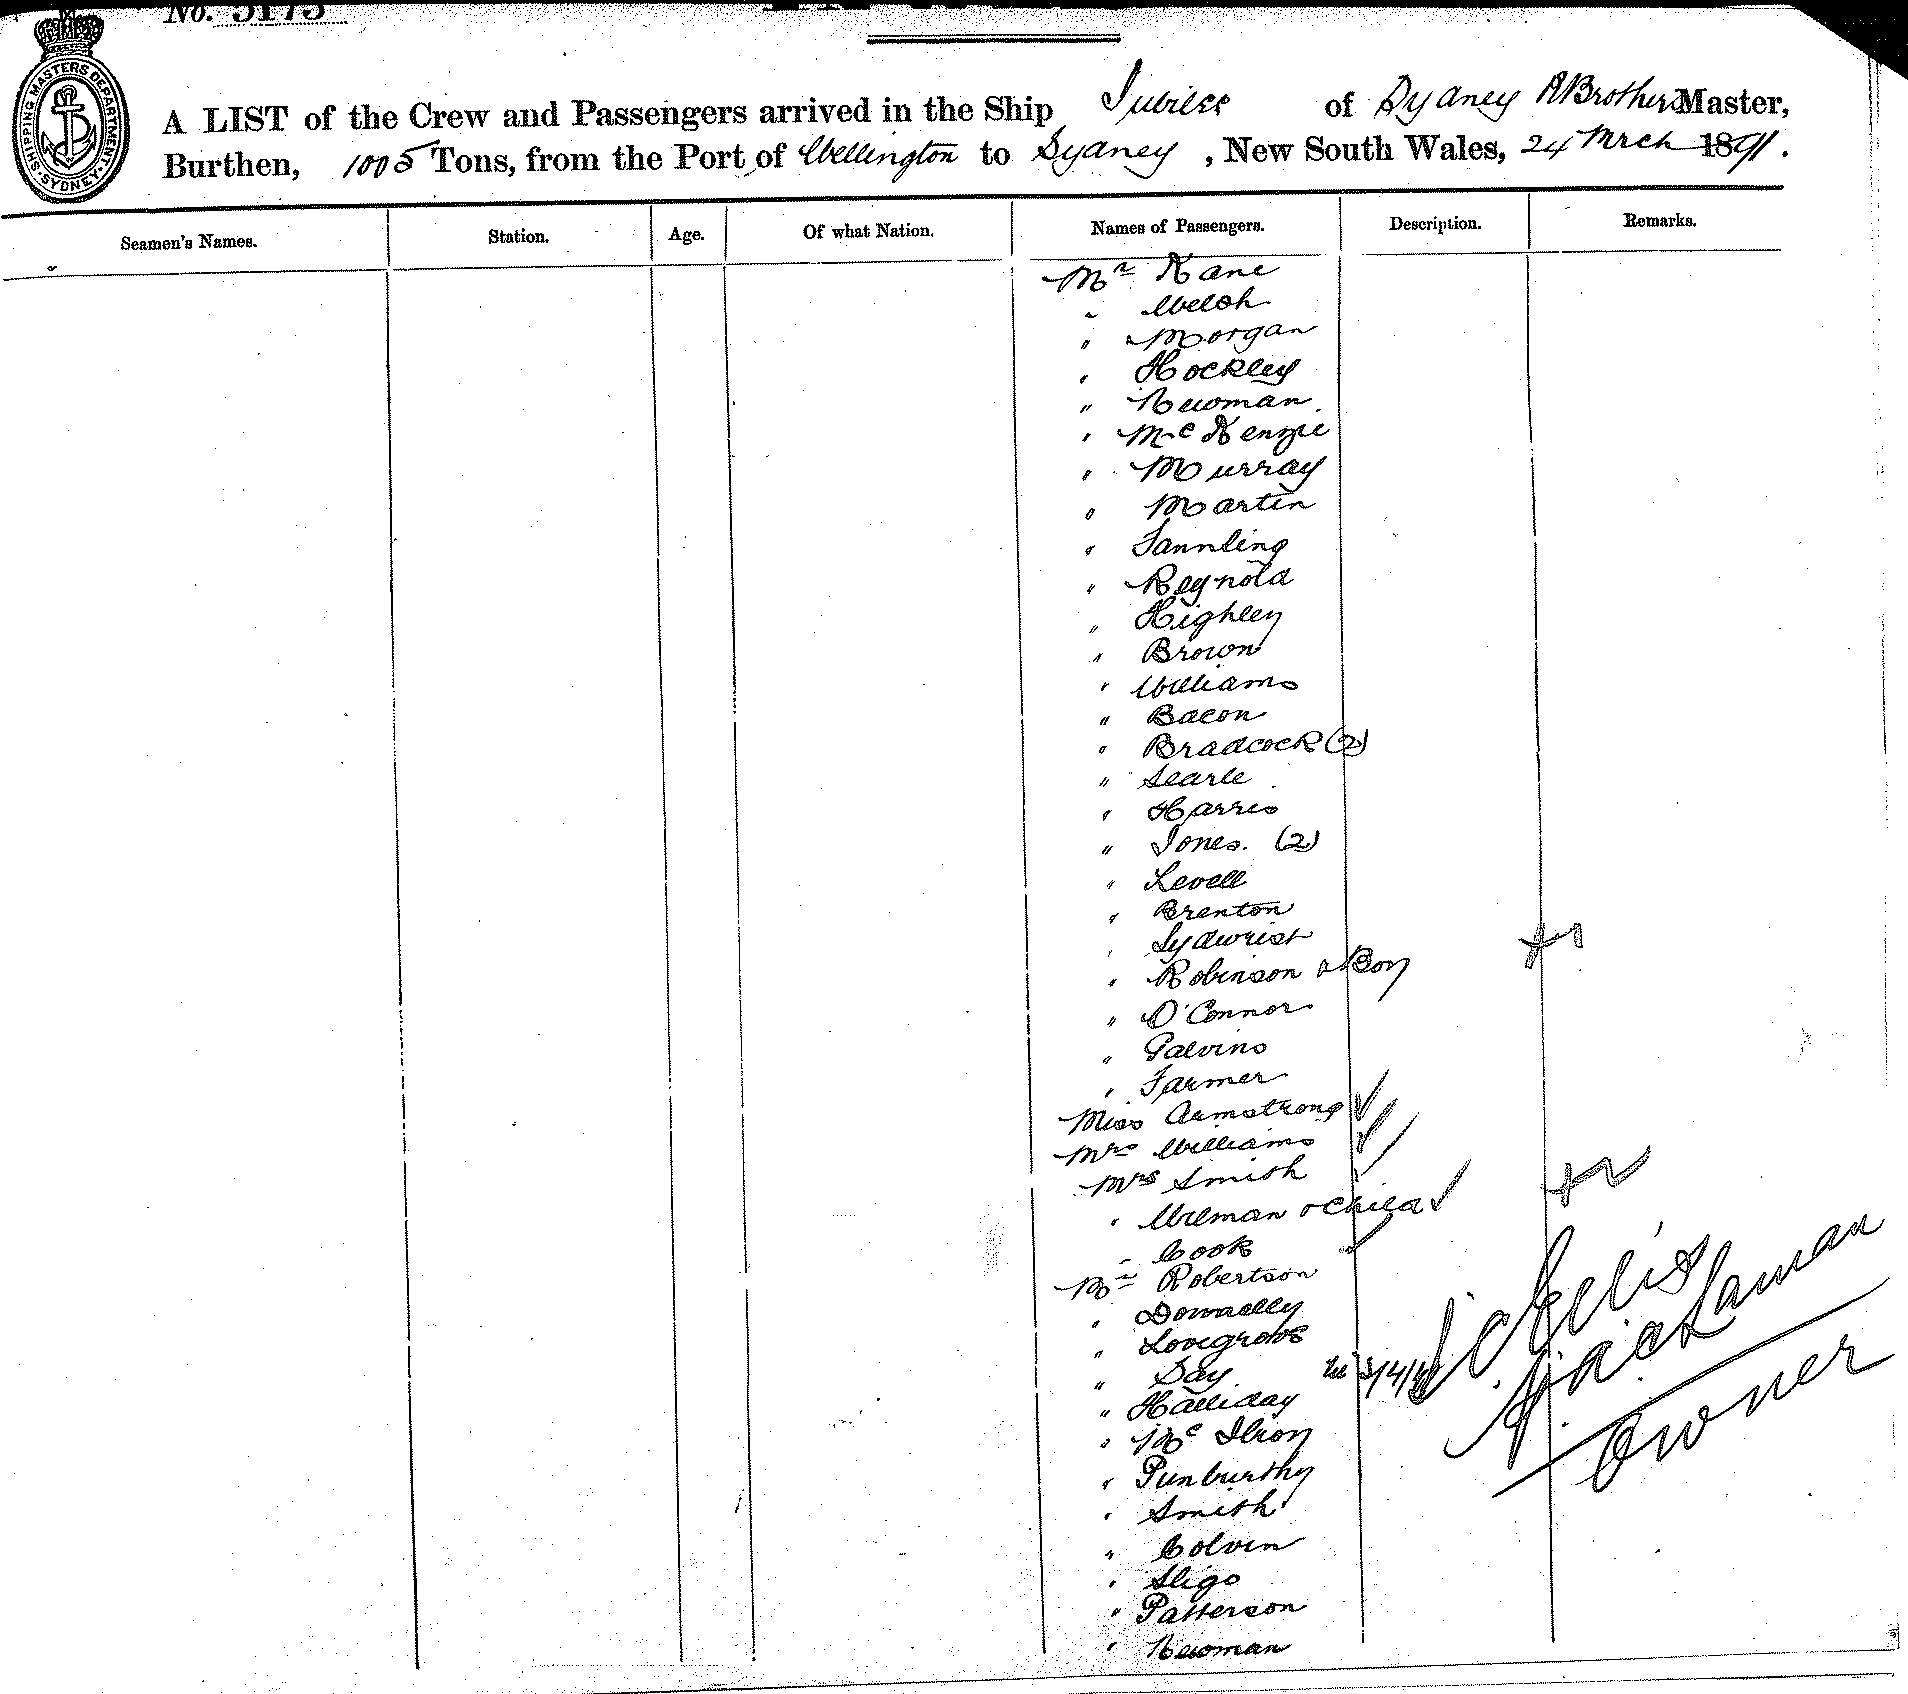 No. 5175
SHIPPING MASTERS DEPARTMENT
SYDNEY
A LIST of the Crew and Passengers arrived in the Ship Jubilee of Sydney A Brothers Master,
Burthen, 1005 Tons, from the Port of Wellington to Sydney, New South Wales, 24 Mrch 1891.
Seamen's Names. Station. Age. Of what Nation. Names of Passengers. Description. Remarks.
Mr Kane
" Welsh
" Morgan
" Hockley
" Newman
" McKenzie
" Murray
" Martin
" Tannling
" Reynold
" Highley
" Brown
" Williams
" Bacon
" Bradcock (2)
" Searle
" Harris
" Jones. (2)
" Levell
" Brenton
" Sydwrist
" Robinson & Boy
" O'Connor
" Galvins
" Farmer
Miss Armstrong
Mrs Williams
Mrs Smith
" Wilman & Child
" Cook
Mr Robertson
" Donnelly
" Lovegrove
" Day
" Halliday
" Mc Ilroy
" Punburthy
" Smith
" Colvin
" Sligo
" Patterson
" Newman
Owner